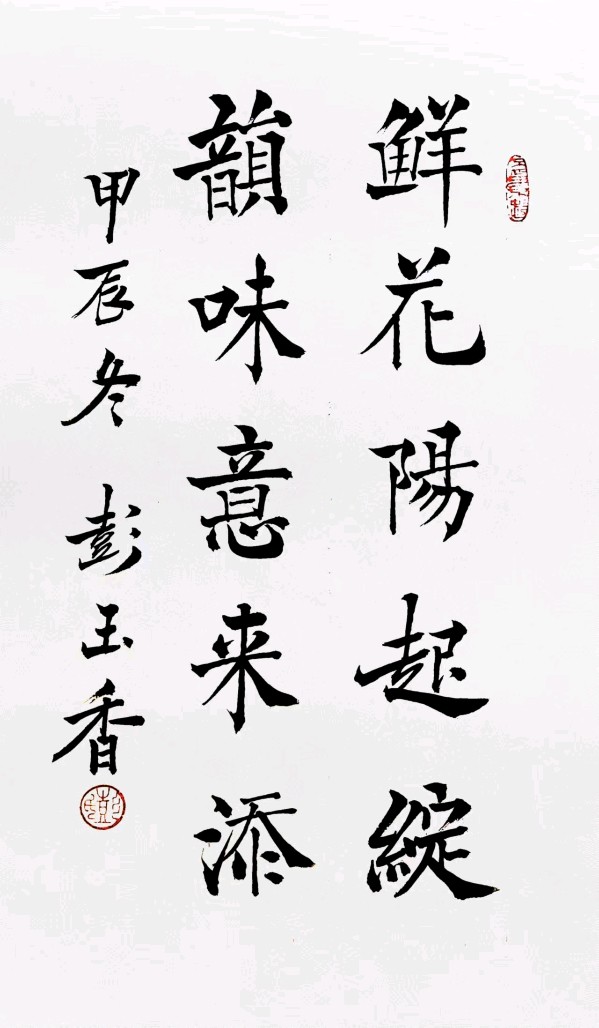 鲜花陽起綻
韻味意来添
甲辰冬 彭玉香